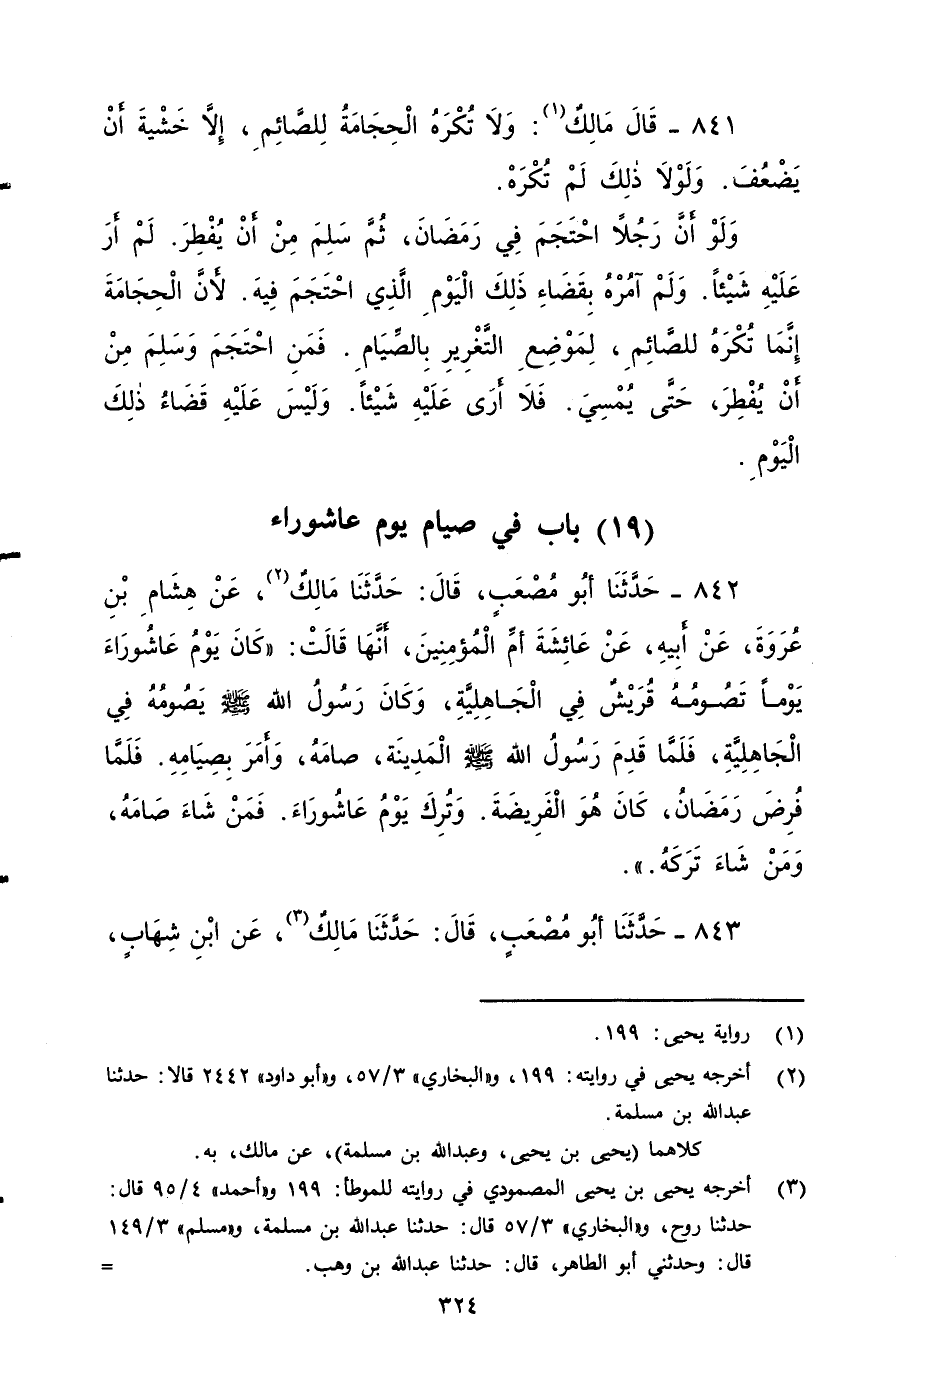 ٨٤١ ـ قَالَ مَالِكٌ(١): وَلَا تُكْرَهُ الْحِجَامَةُ لِلصَّائِمِ، إِلَّا خَشْيةَ أَنْ
يَضْعُفَ. وَلَوْلَا ذٰلِكَ لَمْ تُكْرَهْ.
وَلَوْ أَنَّ رَجُلًا احْتَجَمَ فِي رَمَضَانَ، ثُمَّ سَلِمَ مِنْ أَنْ يُفْطِرَ. لَمْ أَرَ
عَلَيْهِ شَيْئاً. وَلَمْ آمُرْهُ بِقَضَاءِ ذَلِكَ الْيَوْمِ الَّذِي احْتَجَمَ فِيهَ. لَأنَّ الْحِجَامَةَ
إِنَّمَا تُكْرَهُ للصَّائِمِ، لِمَوْضِعِ التَّغْرِيرِ بِالصِّيَامِ. فَمَنِ احْتَجَمَ وَسَلِمَ مِنْ
أَنْ يُفْطِرَ، حَتَّى يُمْسِيَ. فَلَا أَرَى عَلَيْهِ شَيْئاً. وَلَيْسَ عَلَيْهِ قَضَاءُ ذٰلِكَ
الْيَوْمِ.
(١٩) باب في صيام يوم عاشوراء
٨٤٢ ـ حَدَّثَنَا أبُو مُصْعَبٍ، قَالَ: حَدَّثَنَا مَالِكٌ(٢)، عَنْ هِشَامِ بْنِ
عُرَوَةَ، عَنْ أَبِيهِ، عَنْ عَائِشَةَ أمِّ الْمُؤمِنِينَ، أَنَّهَا قَالَتْ: «كَانَ يَوْمُ عَاشُورَاءَ
يَوْمـاً تَصُـومُـهُ قُرَيْشٌ فِي الْجَـاهِلِيَّةِ، وَكَانَ رَسُولُ الله ﷺ يَصُومُهُ فِي
الْجَاهِلِيَّةِ، فَلَمَّا قَدِمَ رَسُولُ الله ﷺ الْمَدِينَة، صامَهُ، وَأَمَرَ بِصِيَامِهِ. فَلَمَّا
فُرِضَ رَمَضَانُ، كَانَ هُوَ الْفَرِيضَةَ. وَتُرِكَ يَوْمُ عَاشُورَاءَ. فَمَنْ شَاءَ صَامَهُ،
وَمَنْ شَاءَ تَرَكَهُ.».
٨٤٣ ـ حَدَّثَنَا أبُو مُصْعَبٍ، قَالَ: حَدَّثَنَا مَالِكٌ(٣)، عَنِ ابْنِ شِهَابٍ،
(١) رواية يحيى: ١٩٩.
(٢) أخرجه يحيى في روايته: ١٩٩، و«البخاري» ٥٧/٣، و«أبو داود» ٢٤٤٢ قالا: حدثنا
عبدالله بن مسلمة.
كلاهما (يحيى بن يحيى، وعبدالله بن مسلمة)، عن مالك، به.
(٣) أخرجه يحيى بن يحيى المصمودي في روايته للموطأ: ١٩٩ و«أحمد» ٩٥/٤ قال:
حدثنا روح، و«البخاري» ٥٧/٣ قال: حدثنا عبدالله بن مسلمة، و«مسلم» ١٤٩/٣
قال: وحدثني أبو الطاهر، قال: حدثنا عبدالله بن وهب. =
٣٢٤